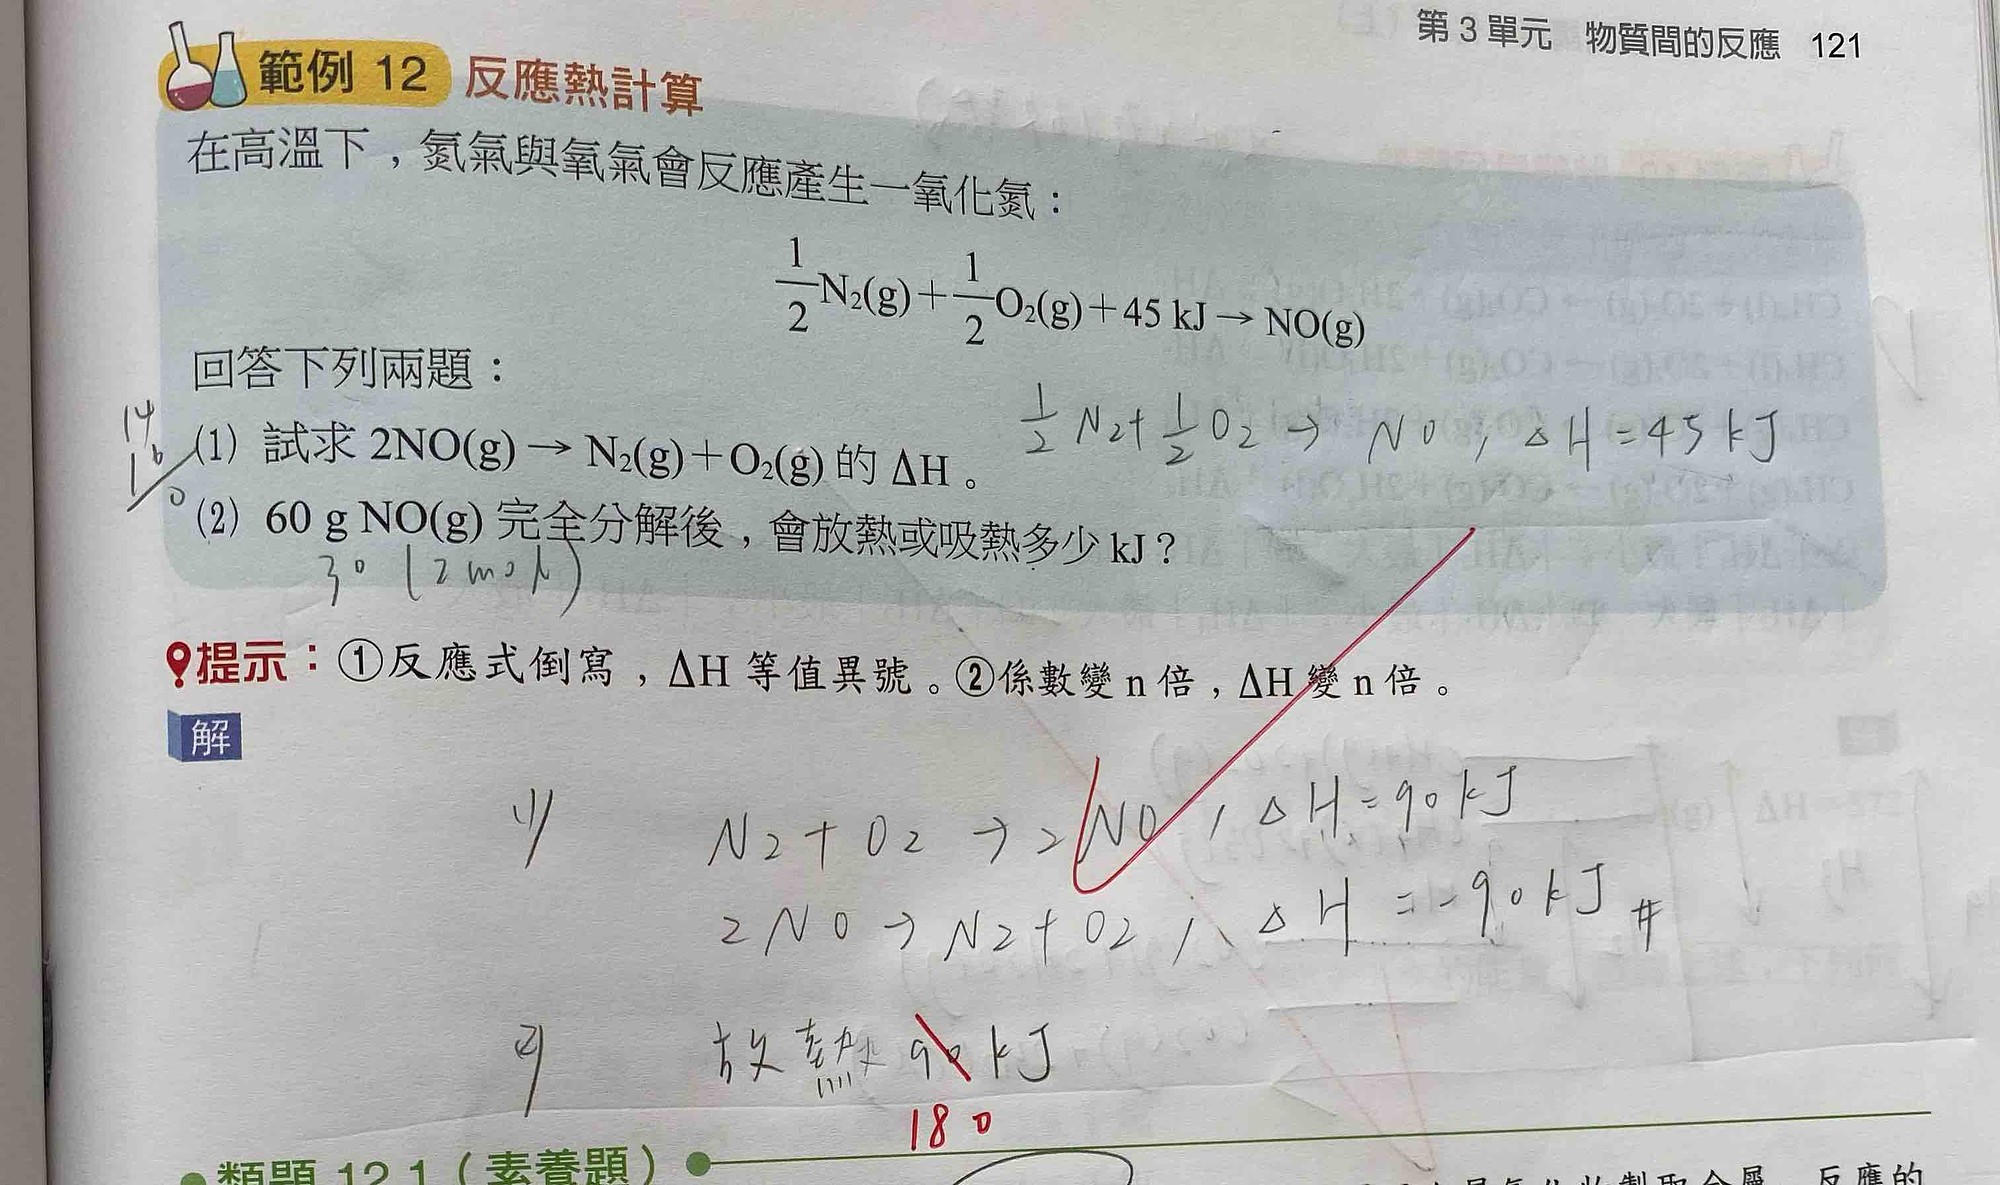 第 3 單元　物質間的反應　121
範例 12　反應熱計算
在高溫下，氮氣與氧氣會反應產生一氧化氮：
1/2 N₂(g)＋1/2 O₂(g)＋45 kJ → NO(g)
回答下列兩題：
1/2 N₂ + 1/2 O₂ → NO , ΔH = 45 kJ
14
16
(1) 試求 2NO(g) → N₂(g)＋O₂(g) 的 ΔH。
(2) 60 g NO(g) 完全分解後，會放熱或吸熱多少 kJ？
30 (2 mol)
提示：①反應式倒寫，ΔH 等值異號。②係數變 n 倍，ΔH 變 n 倍。
解
(1) N₂ + O₂ → 2NO , ΔH = 90 kJ
2NO → N₂ + O₂ , ΔH = -90 kJ #
(2) 放熱 90 kJ
180
類題 12.1（素養題）
反應的